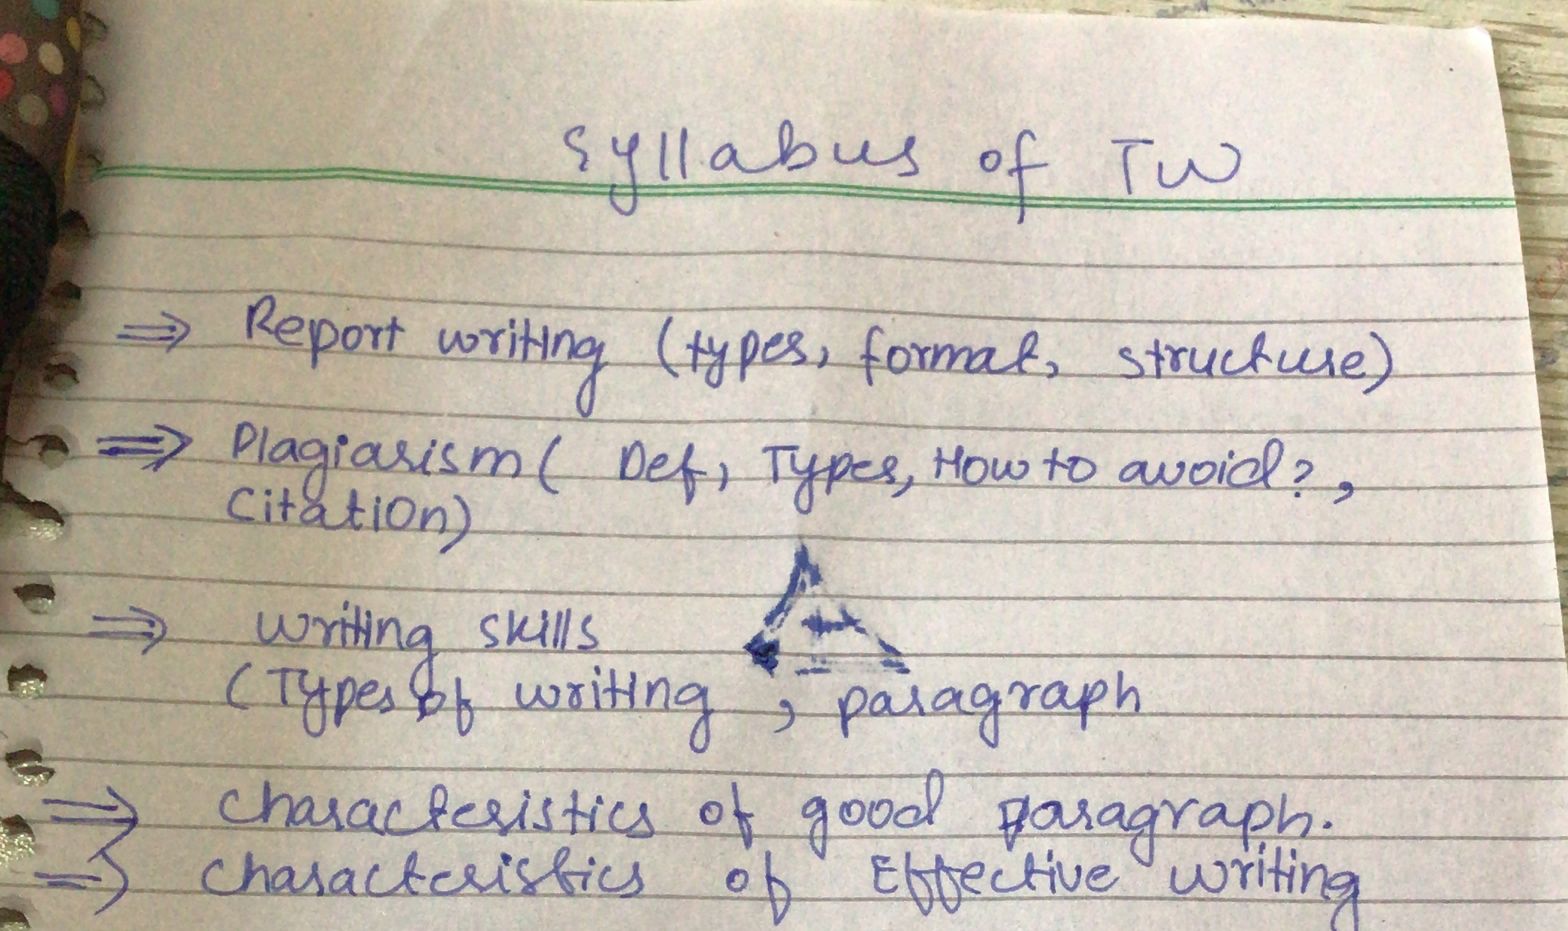 Syllabus of TW
⇒ Report writing (types, format, structure)
⇒ Plagiarism ( Def, Types, How to avoid?,
Citation)
⇒ writing skills
(Types of writing , paragraph
⇒ characteristics of good paragraph.
⇒ characteristics of Effective writing